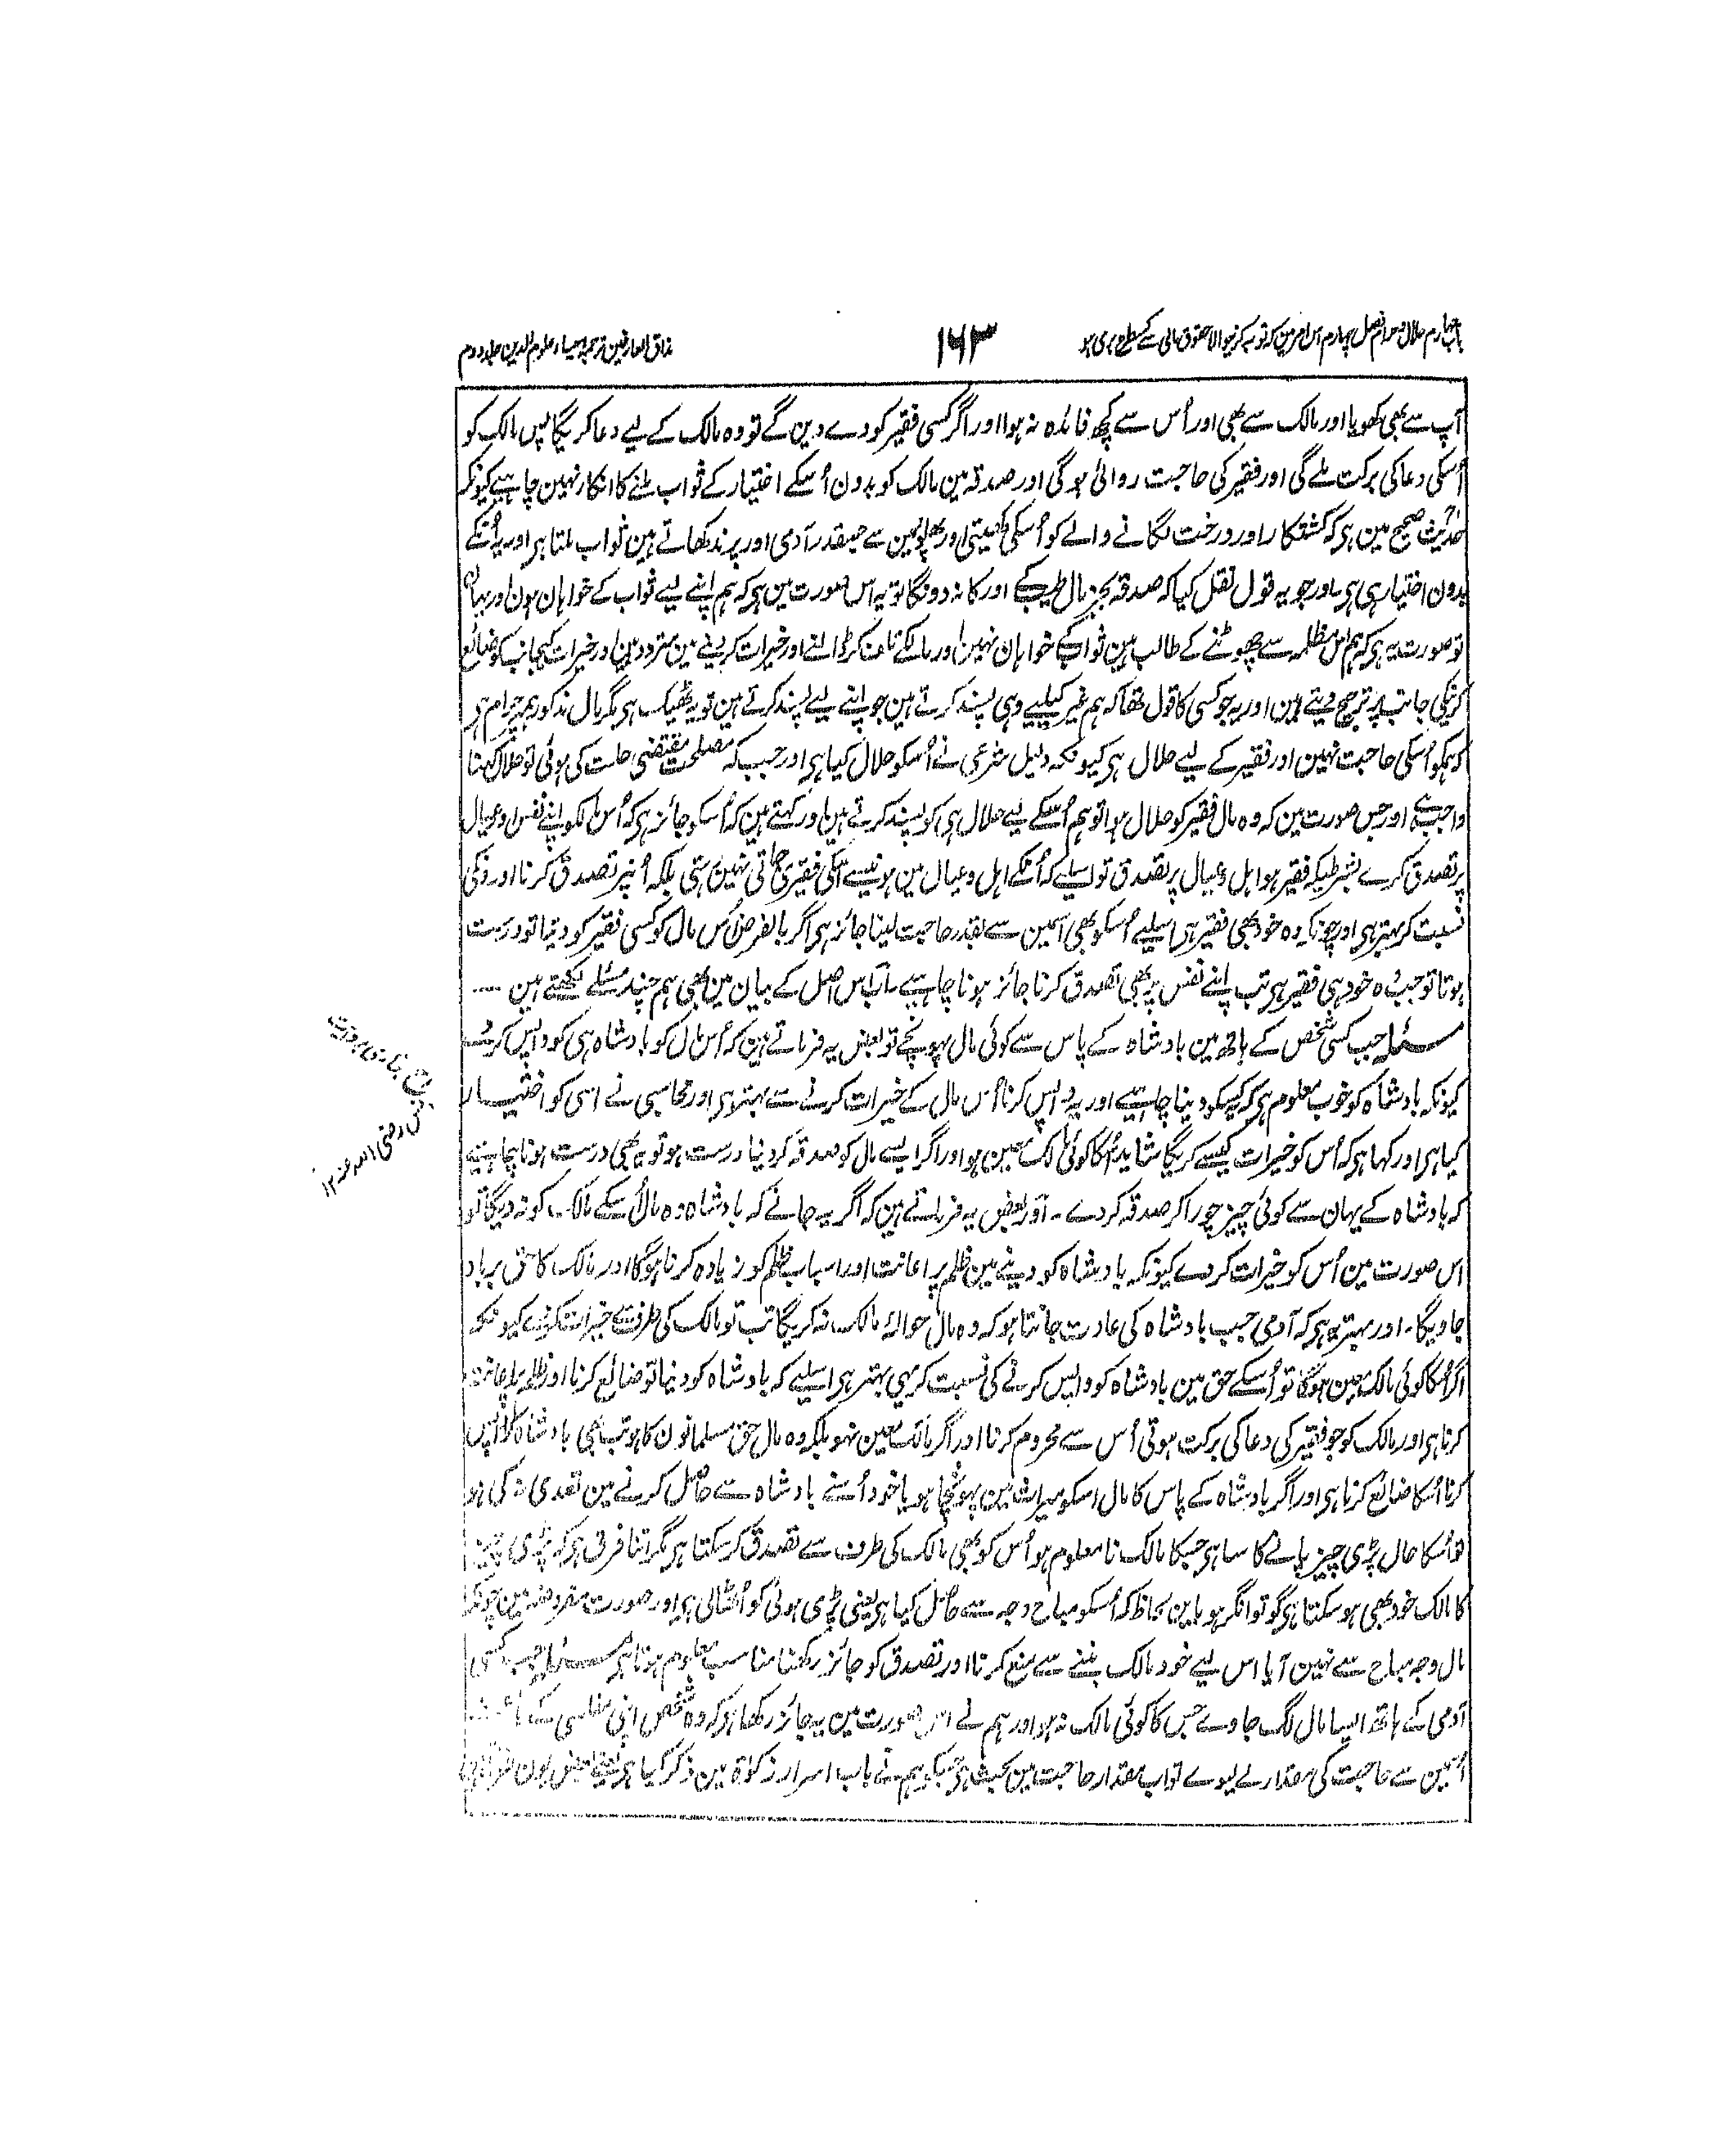 باب چہارم حلال و حرام فصل چہارم اس امر مین کہ توبہ کرنیوالا حقوق مالی سے کسطرح بری ہو
۱۶۳
مذاق العارفین ترجمہ احیاء علوم الدین جلد دوم
آپ سے بھی کھویا اور مالک سے بھی اور اُس سے کچھ فائدہ نہ ہوا اور اگر کسی فقیر کو دے دین گے تو وہ مالک کے لیے دعا کریگا پس مالک کو
اُسکی دعا کی برکت ملے گی اور فقیر کی حاجت روائی ہوگی اور صدقہ مین مالک کو بدون اُسکے اختیار کے ثواب ملنے کا انکار نہین چاہیے کیونکہ
حدیث صحیح مین ہی کہ کشتکار اور درخت لگانے والے کو اُسکی کھیتی اور پھلونمین سے جسقدر آدمی اور پرند کھاتے ہین ثواب ملتا ہی اور یہ اُنکے
بدون اختیار ہی ہی اور جو یہ قول نقل کیا کہ صدقہ بجز مال طیب کے اور کا نہ دونگا تو یہ اس صورت مین ہی کہ ہم اپنے لیے ثواب کے خواہان ہون اور یہان
تو صورت یہ ہی کہ ہم اس مظلمہ سے چھوٹنے کے طالب ہین ثواب کے خواہان نہین اور مال کے ضائع کر ڈالنے اور خیرات کر دینے مین متردد ہین اور خیرات کیجانب کو ضائع
کرنیکی جانب پر ترجیح دیتے ہین اور یہ جو کسی کا قول تھا کہ ہم غیر کیلیے وہی پسند کرتے ہین جو اپنے لیے پسند کرتے ہین تو یہ ٹھیک ہی مگر مال مذکور ہمپر حرام ہی
کہ ہمکو اُسکی حاجت نہین اور فقیر کے لیے حلال ہی کیونکہ دلیل شرعی نے اُسکو حلال کیا ہی اور جب کہ مصلحت مقتضی حلت کی ہوئی تو حلال کہنا
واجب ہے اور جس صورت مین کہ وہ مال فقیر کو حلال ہوا تو ہم اُسکے لیے حلال ہی کو پسند کرتے ہین اور کہتے ہین کہ اُسکو جائز ہی کہ اُس مال کو اپنے نفس اور عیال
پر تصدق کرے بشرطیکہ فقیر ہو اہل و عیال پر تصدق تو اسلیے کہ اُنکے اہل و عیال مین ہونیسے اُنکی فقیری جاتی نہین رہتی بلکہ اُنپر تصدق کرنا اورونکی
نسبت کر بہتر ہی اور چونکہ وہ خود بھی فقیر ہی اسلیے اُسکو بھی اسمین سے بقدر حاجت لینا جائز ہی اگر بالفرض اُس مال کو کسی فقیر کو دیتا تو درست
ہوتا تو جب وہ خود ہی فقیر ہی تب اپنے نفس پر بھی تصدق کرنا جائز ہونا چاہیے۔ اب اس اصل کے بیان مین بھی ہم چند مسئلے لکھتے ہین ....
مسئلہ جب کسی شخص کے ہاتھ مین بادشاہ کے پاس سے کوئی مال پہونچے تو بعض یہ فرماتے ہین کہ اُس مال کو بادشاہ ہی کو واپس کر دے
کیونکہ بادشاہ کو خوب معلوم ہی کہ کسکو دینا چاہیے اور یہ واپس کرنا اُس مال کے خیرات کرنے سے بہتر ہی اور محاسبی نے اسی کو اختیار
کیا ہی اور کہا ہی کہ اُس کو خیرات کیسے کریگا شاید اُسکا کوئی مالک معین ہو اور اگر ایسے مال کو صدقہ کر دینا درست ہو تو یہ بھی درست ہونا چاہیے
کہ بادشاہ کے یہان سے کوئی چیز چورا کر صدقہ کر دے۔ اور بعض یہ فرماتے ہین کہ اگر یہ جانے کہ بادشاہ وہ مال اُسکے مالک کو نہ دیگا تو
اس صورت مین اُس کو خیرات کر دے کیونکہ بادشاہ کو دینے مین ظلم پر اعانت اور اسباب ظلم کو زیادہ کرنا ہوگا اور مالک کا حق برباد
جاویگا۔ اور بہتر یہ ہی کہ آدمی جب بادشاہ کی عادت جانتا ہو کہ وہ مال حوالۂ مالک نہ کریگا تب تو مالک کی طرف سے خیرات کردے کیونکہ
اگر اُسکا کوئی مالک معین ہوگا تو اُسکے حق مین بادشاہ کو واپس کرنے کی نسبت کر یہی بہتر ہی اسلیے کہ بادشاہ کو دینا تو ضائع کرنا اور ظلم پر اعانت
کرنا ہی اور مالک کو جو فقیر کی دعا کی برکت ہوتی اُس سے محروم کرنا اور اگر مالک معین نہو بلکہ وہ مال حق مسلمانون کا ہو تب بھی بادشاہ کو واپس
کرنا اُسکا ضائع کرنا ہی اور اگر بادشاہ کے پاس کا مال اسکو میراث مین پہونچا ہو یا خود اُسنے بادشاہ سے حاصل کرنے مین تعدی نہ کی ہو
تو اُسکا حال پڑی چیز پانے کا سا ہی جسکا مالک نا معلوم ہو اُس کو بھی مالک کی طرف سے تصدق کر سکتا ہی مگر اتنا فرق ہی کہ پڑی چیز
کا مالک خود بھی ہو سکتا ہی گو توانگر ہو باین لحاظ کہ اُسکو مباح وجہ سے حاصل کیا ہی یعنی پڑی ہوئی کو اُٹھالی ہی اور صورت مفروضہ مین چونکہ
مال وجہ مباح سے نہین آیا اس لیے خود مالک بننے سے منع کرنا اور تصدق کو جائز رکھنا مناسب معلوم ہوتا ہی مسئلہ جب کسی
آدمی کے ہاتھ ایسا مال لگ جاوے جس کا کوئی مالک نہ ہو اور ہم نے اس صورت مین یہ جائز رکھا ہی کہ وہ شخص اپنی مفلسی کے باعث
اُسمین سے حاجت کی مقدار لے لیوے تو اب مقدار حاجت مین بحث ہی جسکو ہم نے باب اسرار زکوٰۃ مین ذکر کیا ہی یعنے بعض یون فرماتے ہین
بخاری بروایت
انس رضی اللہ عنہ ۱۲